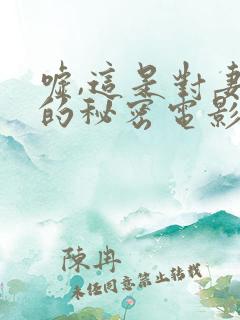 嘘,這是對妻
的秘密電影
陳冉
未经同意禁止转载